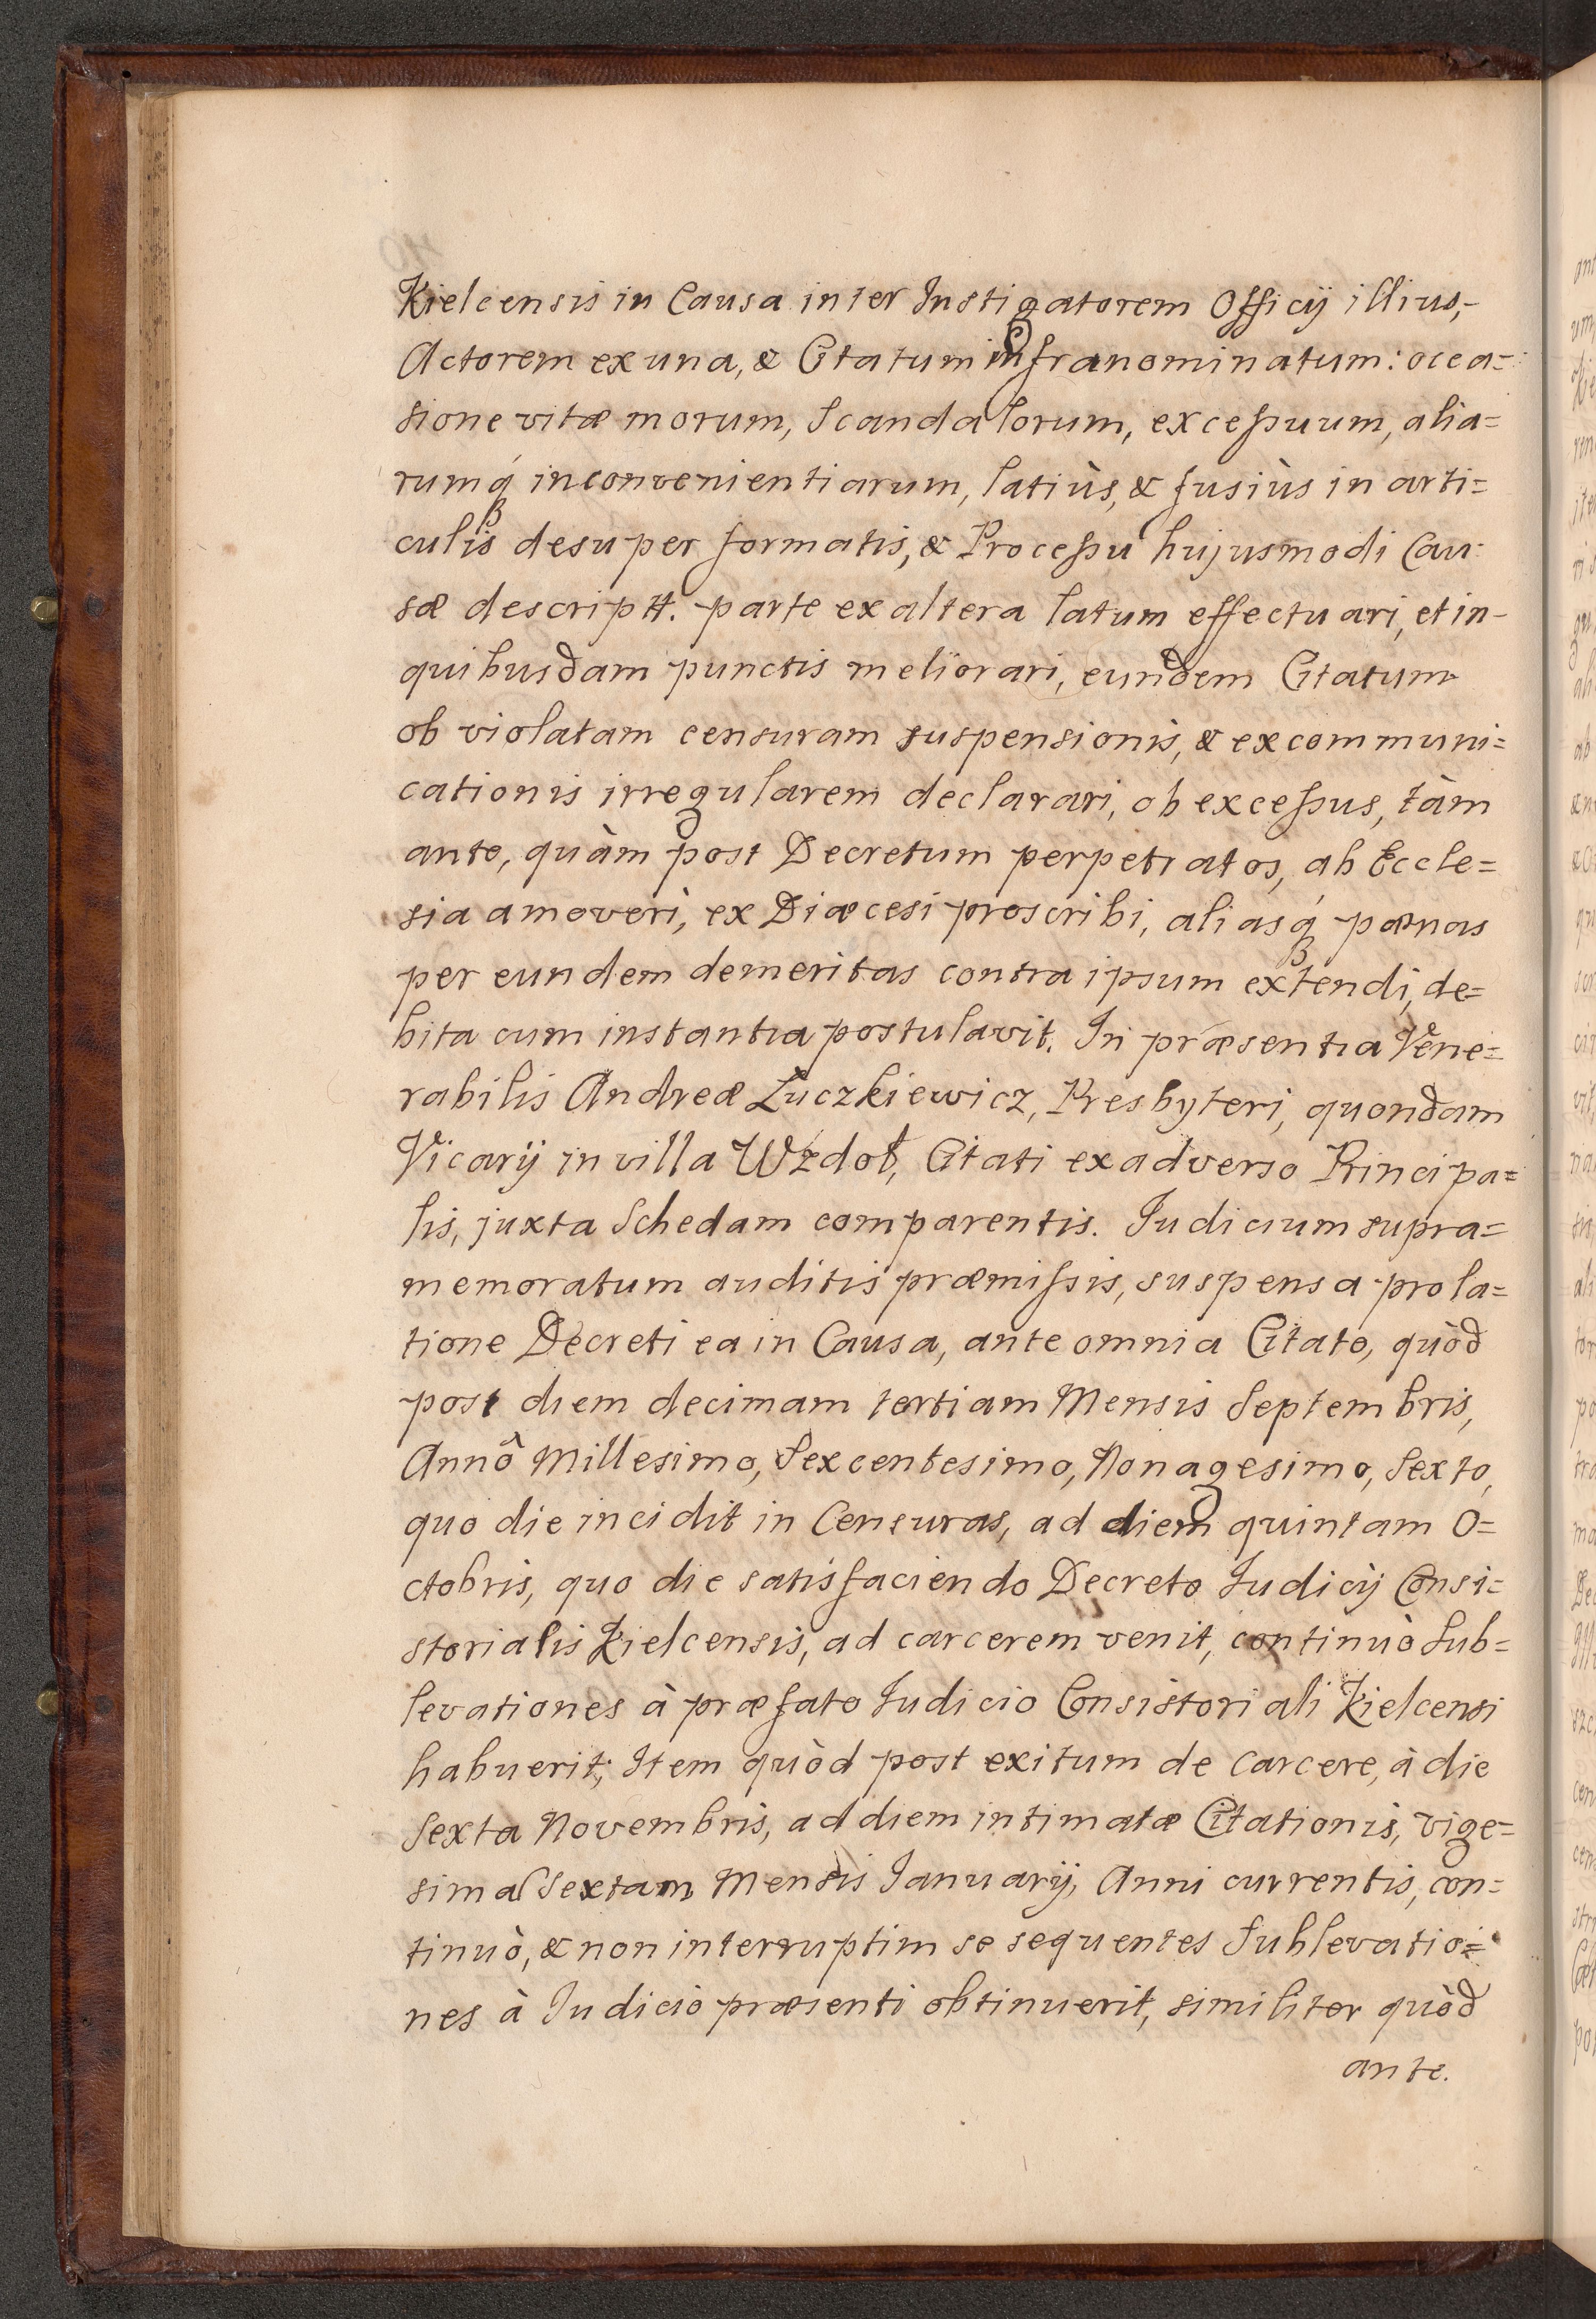 Kielcensis in Causa inter Instigatorem Officÿ illius,-
Actorem ex una, & Citatum infranominatum: occa=
sione vitæ morum, Scandalorum, excessuum, alia=
rumq́ inconvenientiarum, latiùs, & fusiùs in arti=
culis desuper formatis, & Processu hujusmodi Cau=
sæ descriptt. parte ex altera latum effectuari, et in-
quibusdam punctis meliorari, eundem Citatum
ob violatam censuram suspensionis, & excommuni=
cationis irregularem declarari, ob excessus, tàm
ante, quàm post Decretum perpetratos, ab Eccle=
sia amoveri, ex Diæcesi proscribi, aliasq́ pænas
per eundem demeritas contra ipsum extendi, de=
bita cum instantia postulavit. In præsentia Vene=
rabilis Andreæ Łuczkiewicz, Presbyteri, quondam
Vicarÿ in villa Wzdoł, Citati ex adverso Principa=
lis, juxta Schedam comparentis. Iudicium supra=
memoratum auditis præmissis, suspensa prola=
tione Decreti ea in Causa, ante omnia Citato, quòd
post diem decimam tertiam Mensis Septembris,
Annô Millesimo, Sexcentesimo, Nonagesimo, Sexto,
quo die incidit in Censuras, ad diem quintam O=
ctobris, quo die satisfaciendo Decreto Iudicÿ Consi=
storialis Kielcensis, ad carcerem venit, continuò Sub=
levationes à præfato Iudicio Consistoriali Kielcensi
habuerit; Item quòd post exitum de carcere, à die
Sexta Novembris, ad diem intimatæ Citationis, vige=
sima Sextam Mensis Ianuarÿ, Anni currentis, con=
tinuò, & non interruptim se sequentes Sublevatio=
nes à Iudiciò præsenti obtinuerit, similiter quòd
ante.